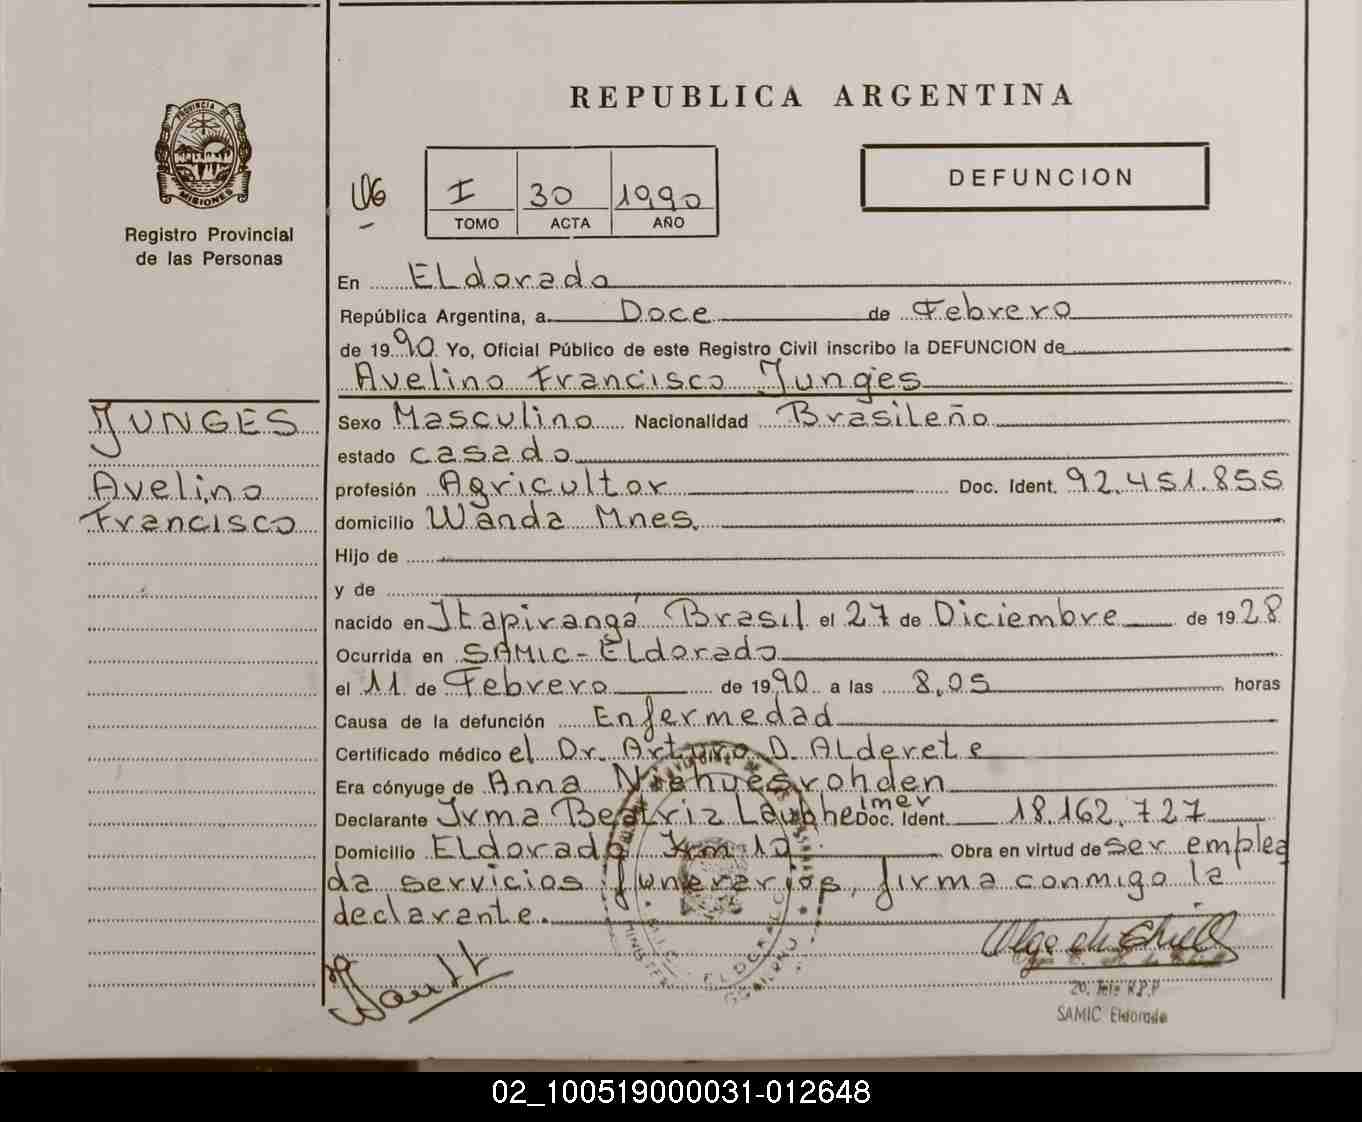 REPUBLICA ARGENTINA
PROVINCIA DE
MISIONES
Registro Provincial
de las Personas
I 30 1990
TOMO ACTA AÑO
DEFUNCION
En ELdorado
República Argentina, a Doce de Febrero
de 1990 Yo, Oficial Público de este Registro Civil inscribo la DEFUNCION de
Avelino Francisco Junges
JUNGES
Avelino
Francisco
Sexo Masculino Nacionalidad Brasileño
estado casado
profesión Agricultor Doc. Ident. 92.451.855
domicilio Wanda Mnes.
Hijo de
y de
nacido en Itapiranga Brasil el 27 de Diciembre de 1928
Ocurrida en SAMIC-ELdorado
el 11 de Febrero de 1990 a las 8,05 horas
Causa de la defunción Enfermedad
Certificado médico el Dr. Arturo D. ALderete
Era cónyuge de Anna Niehuesrohden
Declarante Irma Beatriz Laubheimer Doc. Ident. 18.162.727
Domicilio ELdorado Km 10 Obra en virtud de ser emplea
da servicios funerarios, firma conmigo la
declarante.
SAMIC Eldorado
02_100519000031-012648